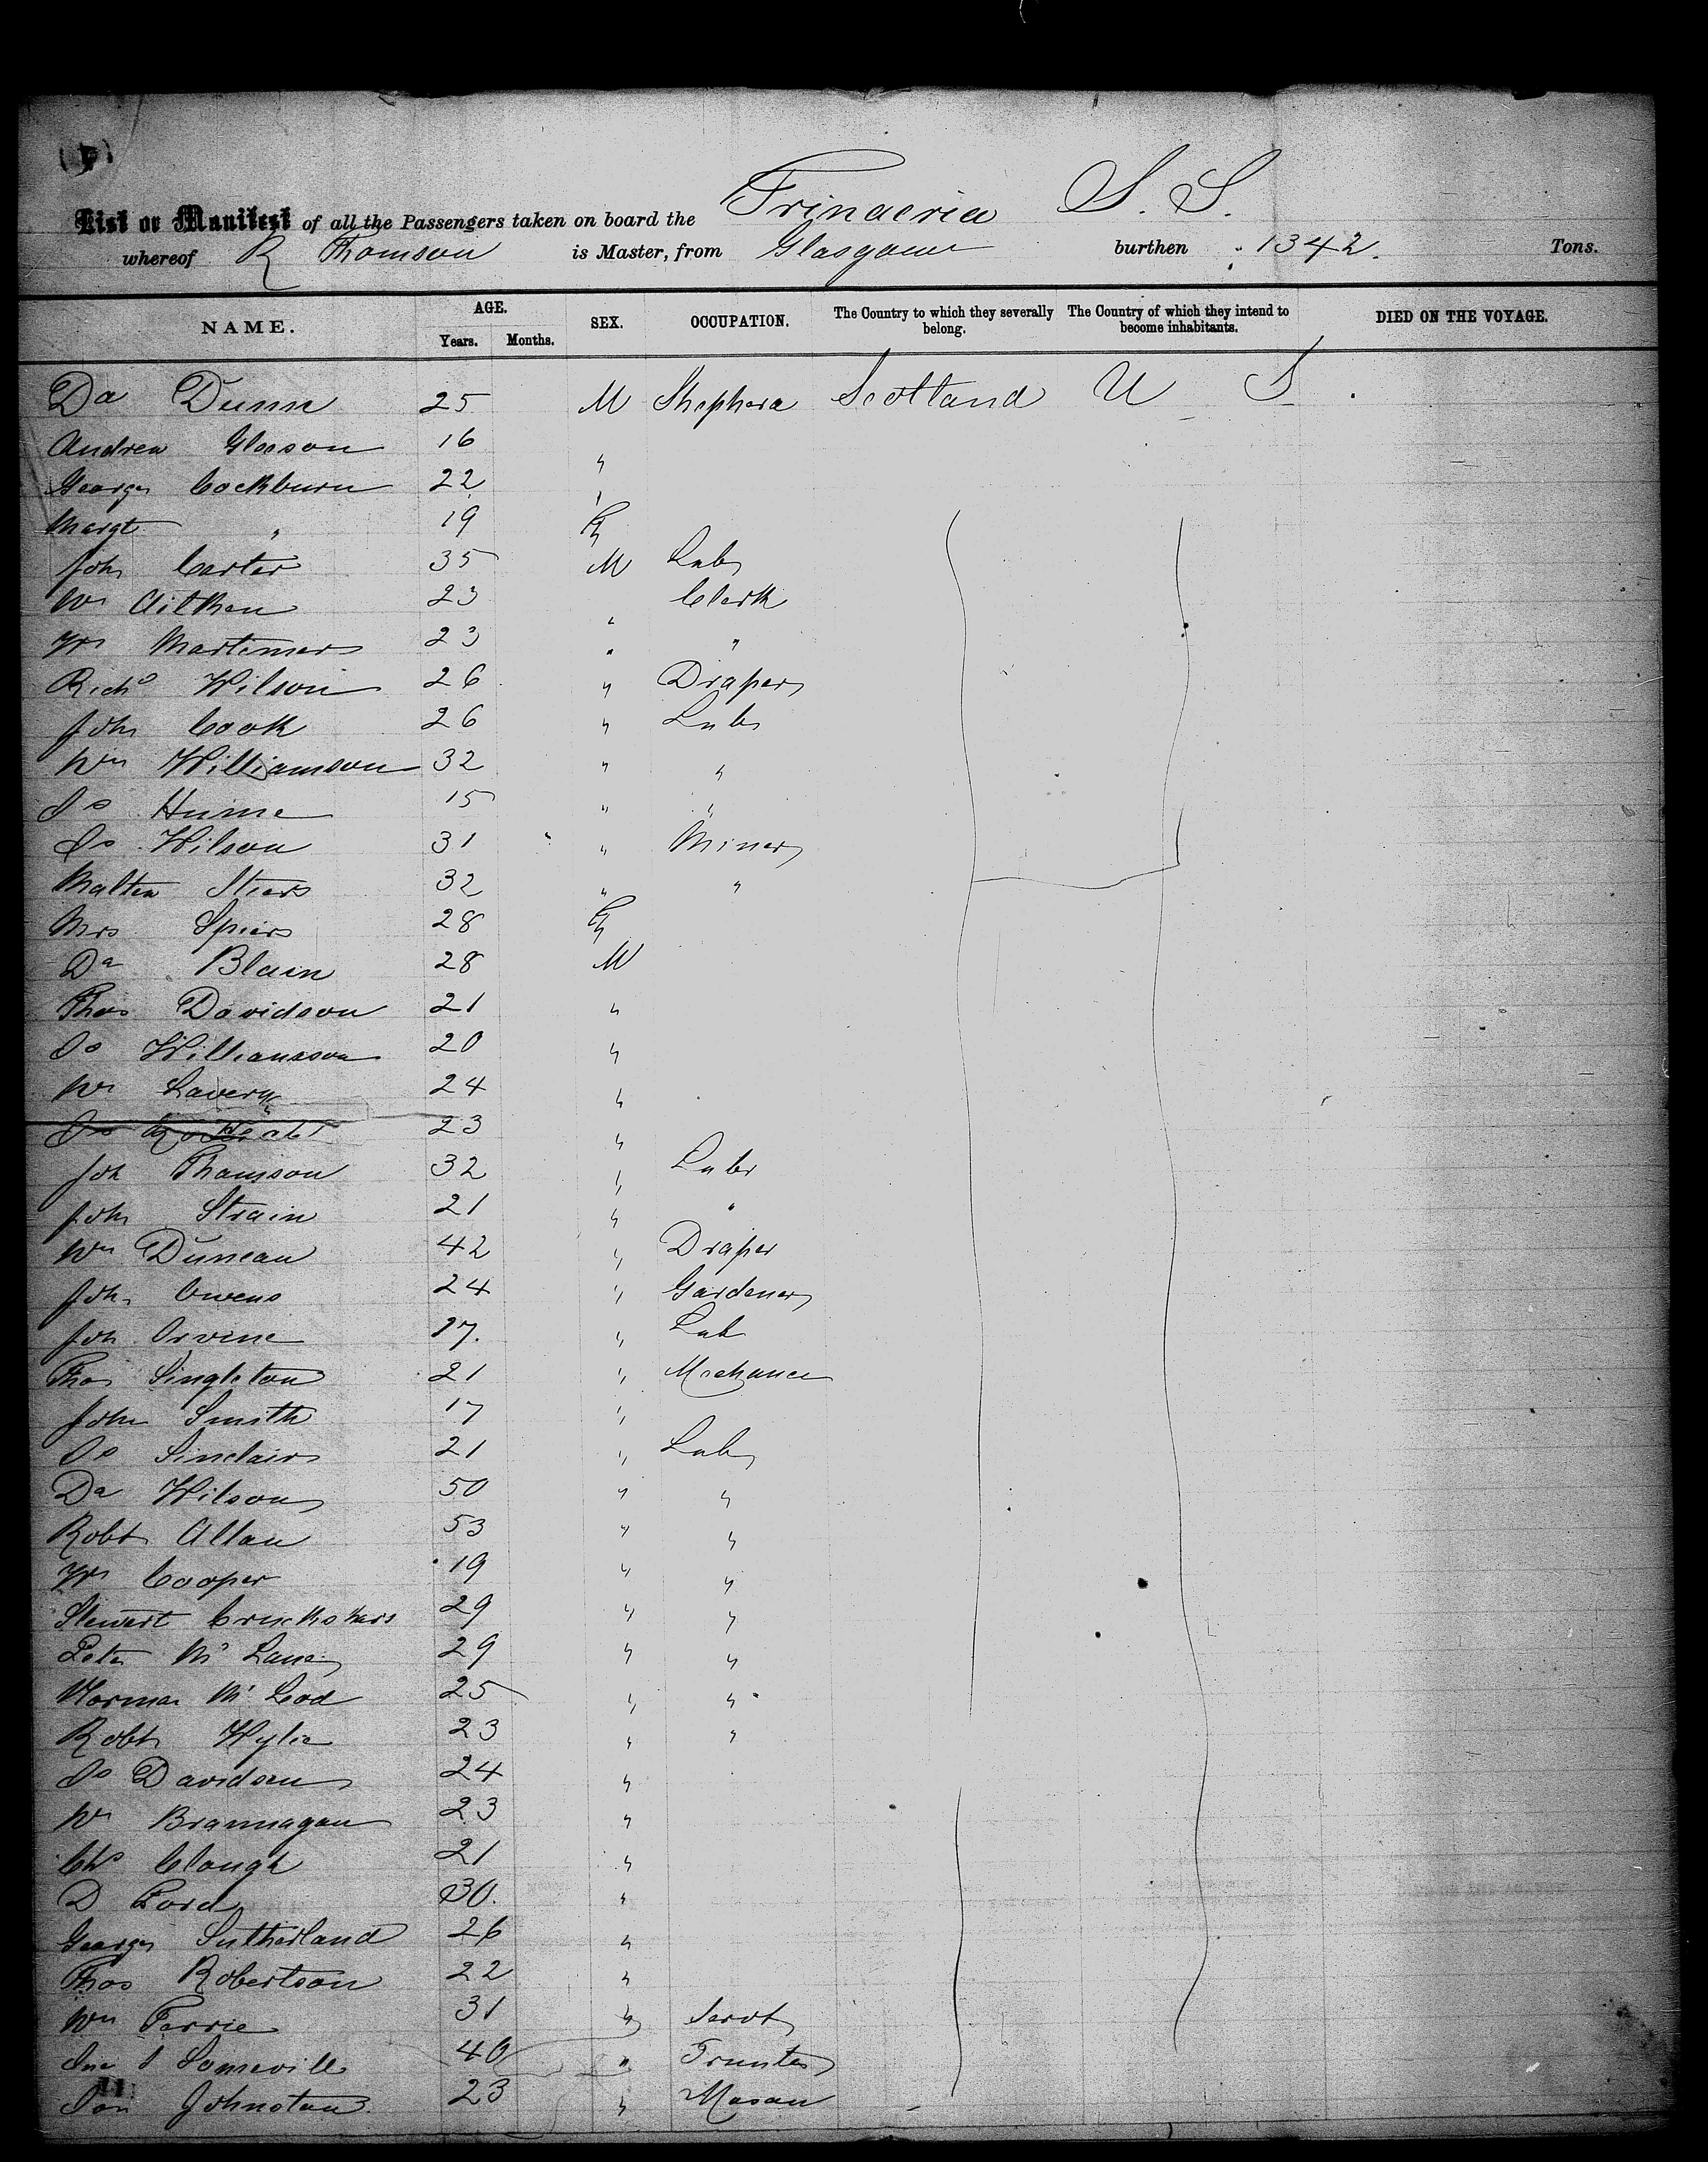 List or Manifest of all the Passengers taken on board the Trinacria S. S.
whereof R Thomson is Master, from Glasgow burthen 1342. Tons.
NAME. AGE. Years. Months. SEX. OCCUPATION. The Country to which they severally belong. The Country of which they intend to become inhabitants. DIED ON THE VOYAGE.
Da Dunn 25 M Shepherd Scotland U S
Andrew Gleeson 16 "
George Cockburn 22 "
Margt " 19 F
John Carter 35 M Labr
Wm Aitken 23 " Clerk
Wm Martimer 23 " "
Richd Wilson 26 " Draper
John Cook 26 " Labr
Wm Williamson 32 " "
Js Hume 15 " "
Js Wilson 31 " Miner
Walter 32 " "
Mrs Spiers 28 F
Da Blain 28 M
Thos Davidson 21 "
Js Williamson 20 "
Wm Lavery 24 "
Js 23 "
Joh Thomson 32 " Labr
John Strain 21 " "
Wm Duncan 42 " Draper
John Owens 24 " Gardener
Joh Irvine 17. " Lab
Thos Singleton 21 " Mechanic
John Smith 17 "
Js Sinclair 21 " Labr
Da Wilson 50 " "
Robt Allan 53 " "
Wm Cooper 19 " "
Stewart 29 " "
Peter Mc Lane 29 " "
Norman Mc Leod 25 " "
Robt Wylie 23 " "
Js Davidson 24 "
Wm Brannagan 23 "
Chs Clough 21 "
D Lord 30. "
George Sutherland 26 "
Thos Robertson 22 "
Wm Ferrie 31 " Servt
Somerville 40 "
Johnston 23 " Mason
11